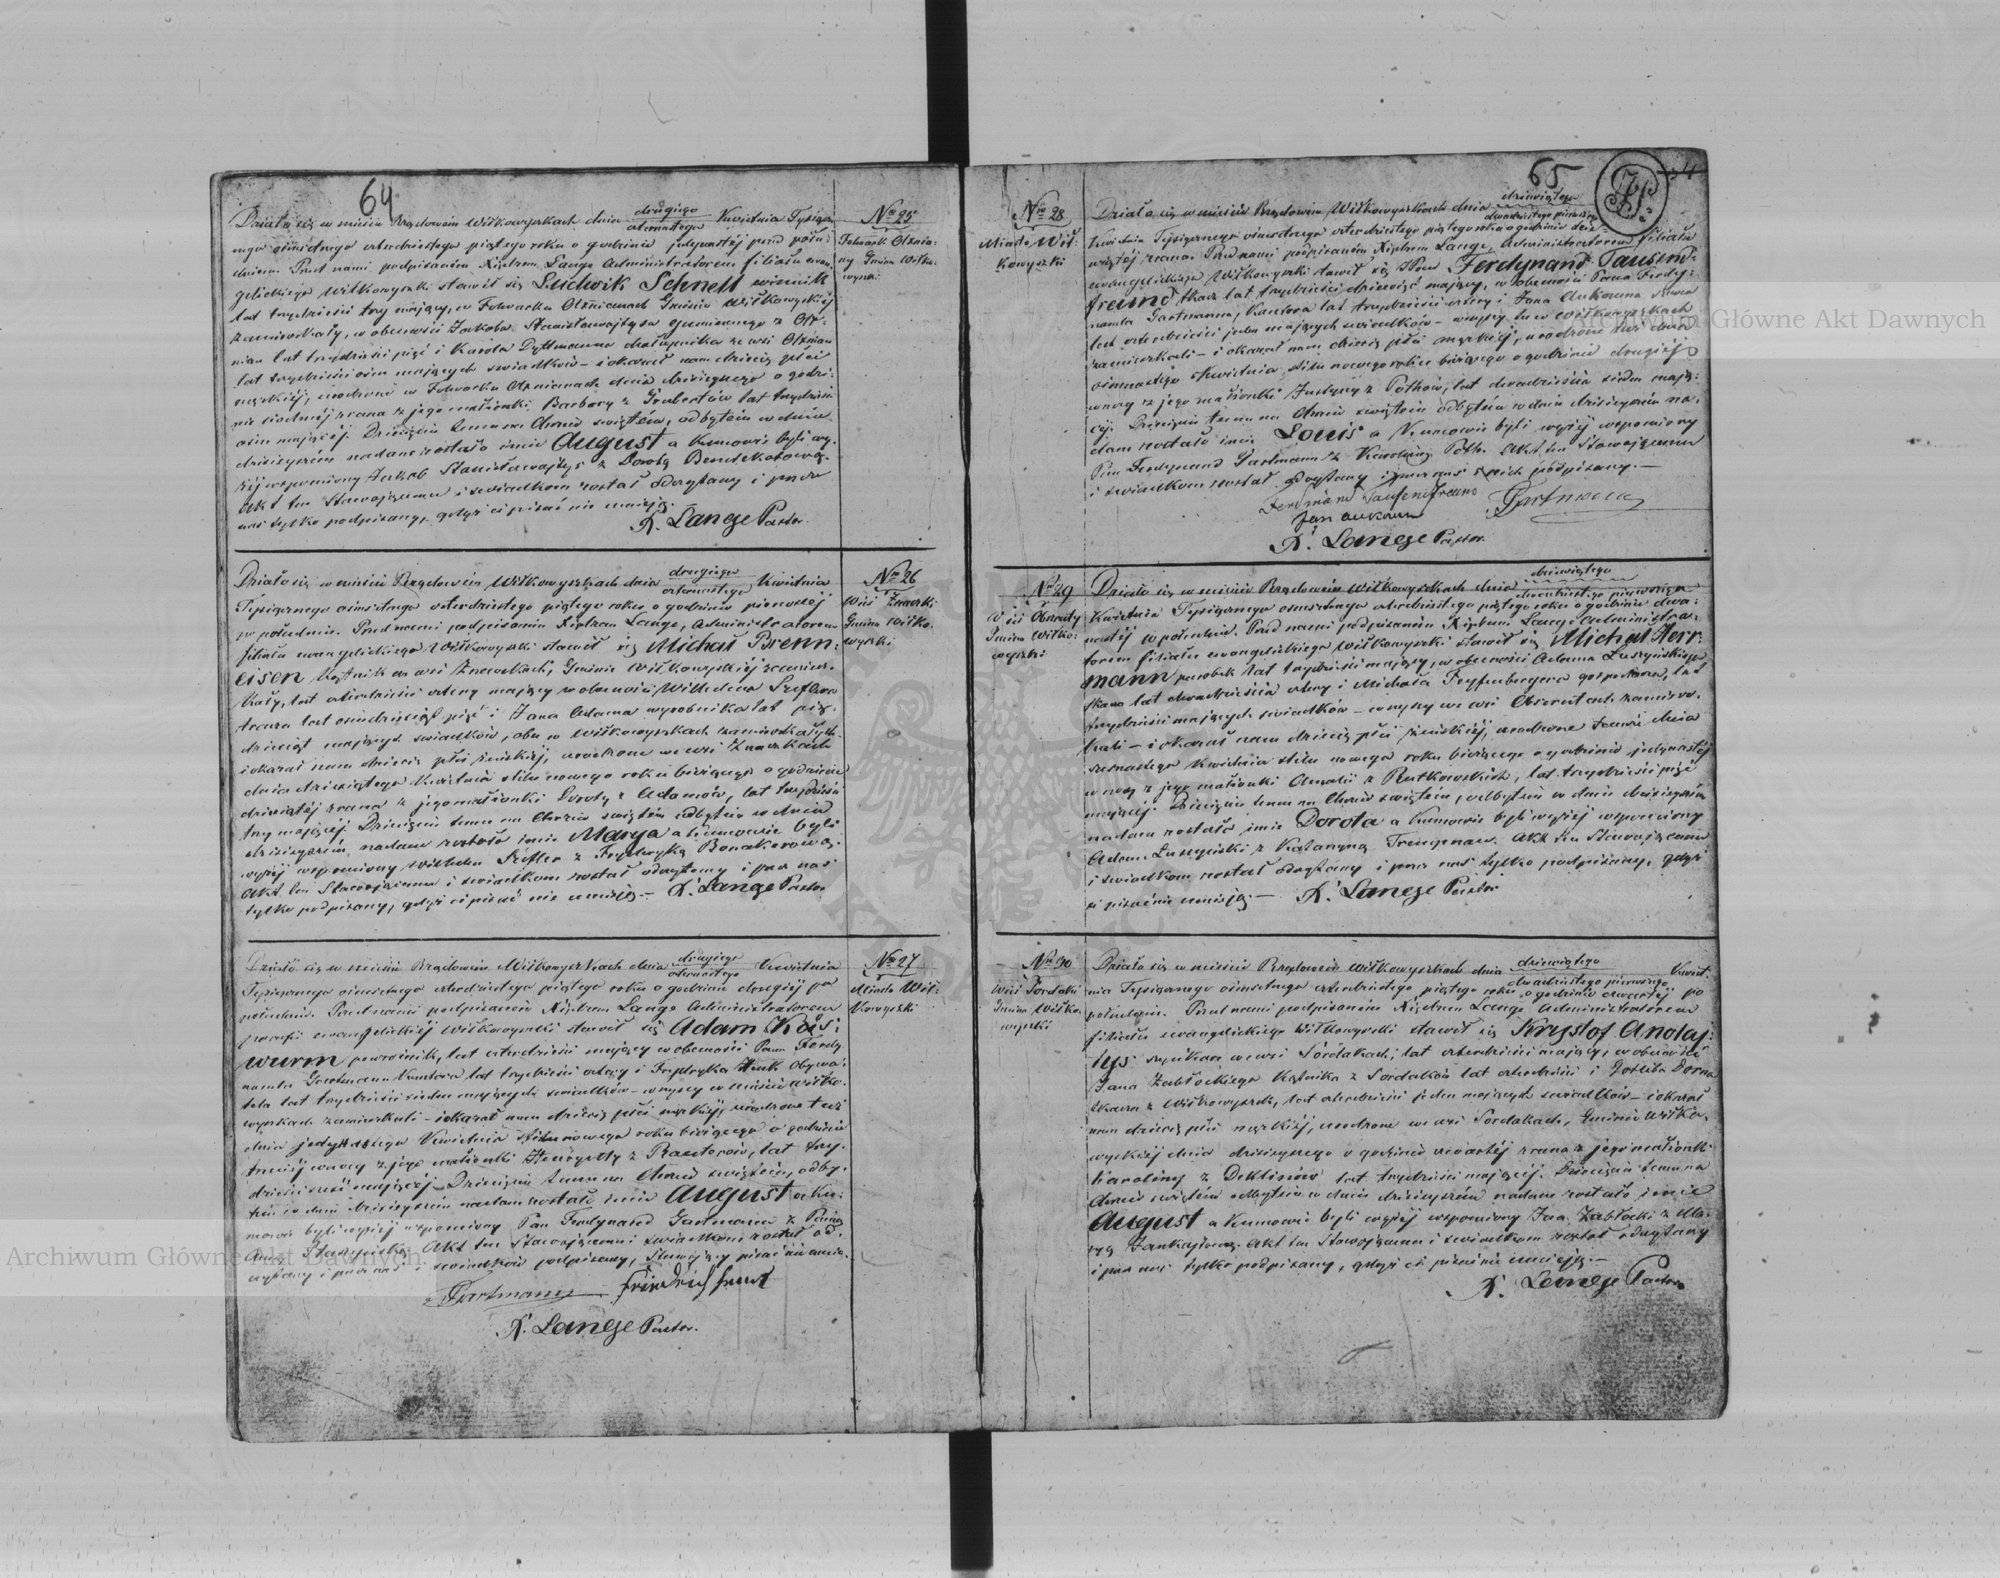 64
Działo się w mieście Rządowem Wiłkowyszkach dnia drugiego/czternastego Kwietnia Tysiącz-
nego ośmsetnego czterdziestego piątego roku o godzinie jedynastej przed połu-
dniem. Przed nami podpisanym Xiędzem Lange Administratorem filiału ewan-
gelickiego Wiłkowyszki stawił się Ludwik Schnell winnik
lat trzydzieści trzy mający, w Folwarku Olxnianach Gminie Wiłkowyskiej
zamieszkały, w obecności Jakoba Stanisławajtysa gumiennego z Olx-
nian lat trzydzieści pięć i Karola Dyttmanna chałupnika ze wsi Olxnian
lat trzydzieści ośm mających świadków – i okazał nam dziecię płci
męzkiéj, urodzone w Folwarku Olxnianach dnia dzisiejszego o godzi-
nie siódméj zrana z jego małżonki Barbary z Grubertów lat trzydzieści
ośm mającéj. Dziecięciu temu na Chrzcie świętém, odbytém w dniu
dzisiejszém nadane zostało imie August a Kumowie byli wy-
żéj wspomniony Jakob Stanisławajtys z Dorotą
Akt ten Stawającemu i świadkom został odczytany i przez
nas tylko podpisany, gdyż ci pisać nie umieją.
X. Lange Pastor.
No 25
Folwark Olxnia-
ny Gmina Wiłko-
wyszki
Działo się w mieście Rządowem Wiłkowyszkach dnia drugiego/czternastego Kwietnia
Tysiącznego ośmsetnego czterdziestego piątego roku o godzinie pierwszéj
po południu. Przed nami podpisanym Xiędzem Lange, Administratorem
filiału ewangelickiego Wiłkowyszki stawił się Michał Brenn-
eisen kątnik we wsi Znaczkach, Gminie Wiłkowyskiéj zamiesz-
kały, lat czterdzieści cztery mający w obecności Wilhelma Szeflera
tkacza lat ośmdziesiąt pięć i Jana Adama wyrobnika lat pię-
dziesiąt mających świadków, obu w Wiłkowyszkach zamieszkałych
i okazał nam dziecię płci żeńskiéj, urodzone we wsi Znaczkach
dnia dziesiątego Kwietnia stilu nowego roku bieżącego o godzinie
dziewiątéj zrana z jego małżonki Doroty z Adamów, lat trzydzieści
trzy mającéj. Dziecięciu temu na Chrzcie świętém odbytém w dniu
dzisiejszém nadane zostało imie Marya a Kumowie byli
wyżéj wspomniony Wilhelm Szefler z Fryderyką
Akt ten Stawającemu i świadkom został odczytany i przez nas
tylko podpisany, gdyż ci pisać nie umieją. – X. Lange Pastor
No 26
Wieś Znaczki
Gmina Wiłko-
wyszki
Działo się w mieście Rządowem Wiłkowyszkach dnia drugiego/czternastego Kwietnia
Tysiącznego ośmsetnego czterdziestego piątego roku o godzinie drugiéj po
południu. Przed nami podpisanym Xiędzem Lange Administratorem
parafii ewangelickiéj Wiłkowyszki stawił się Adam Kois-
wurm powroźnik, lat czterdzieści mający w obecności Pana Ferdy-
nanda Gartmann Kantora lat trzydzieści cztery i Fryderyka Obywa-
tela lat trzydzieści siedm mających świadków – wszyscy w mieście Wiłko-
wyszkach zamieszkali – i okazał nam dziecię płci męzkiéj, urodzone tuż
dnia jedynastego Kwietnia stilu nowego roku bieżącego o godzinie
trzeciéj w nocy z jego małżonki Henryetty z lat trzy-
dzieści sześć mającéj. Dziecięciu temu na Chrzcie świętém, odby-
tém w dniu dzisiejszém nadane zostało imie August a Ku-
mowie byli wyżéj wspomniony Pan Ferdynand Gartmann z Panią
Akt ten Stawającemu i świadkom został od-
czytany i przez nas i świadków podpisany, Stawający pisać nie umie.
Gartmann Friedrich
X. Lange Pastor.
No 27
Miasto Wił-
kowyszki
65
No 28
Miasto Wił-
kowyszki
Działo się w mieście Rządowem Wiłkowyszkach dnia dziewiątego/dwudziestego pierwszego
Kwietnia Tysiącznego ośmsetnego czterdziestego piątego roku o godzinie dzie-
wiątéj zrana. Przed nami podpisanym Xiędzem Lange, Administratorem filiału
ewangelickiego Wiłkowyszki stawił się Pan Ferdynand Tausend-
freund tkacz lat trzydzieści dziewięć mający, w obecności Pana Ferdy-
nanda Gartmanna, Kantora lat trzydzieści cztery i Jana Aukamma
lat czterdzieści jeden mających świadków – wszyscy tu w Wiłkowyszkach
zamieszkali – i okazał nam dziecię płci męzkiéj, urodzone tuż dnia
ósmnastego Kwietnia stilu nowego roku bieżącego o godzinie drugiéj
w nocy z jego małżonki Justyny z Pothów, lat dwadzieścia siedm mają-
céj. Dziecięciu temu na Chrzcie świętém odbytém w dniu dzisiejszém na-
dane zostało imie Louis a Kumowie byli wyżéj wspomniony
Pan Ferdynand Gartmann z Karoliną Poth. Akt ten Stawającemu
i świadkom został odczytany i przez nas i nich podpisany. –
Ferdinand Tausendfreund Gartmann
Jan Aukamm
X. Lange Pastor
No 29
Wieś Obszruty
Gmina Wiłko-
wyszki
Działo się w mieście Rządowem Wiłkowyszkach dnia dziewiątego/dwudziestego pierwszego
Kwietnia Tysiącznego ośmsetnego czterdziestego piątego roku o godzinie dwu-
nastéj w południe. Przed nami podpisanym Xiędzem Lange Administra-
torem filiału ewangelickiego Wiłkowyszki stawił się Michał Herr-
mann parobek lat trzydzieści mający, w obecności Adama Łuszyńskiego
lat dwadzieścia cztery i Michała gospodarza, lat
trzydzieści mających świadków – wszyscy we wsi Obszrutach zamiesz-
kali – i okazał nam dziecię płci żeńskiéj, urodzone tamże dnia
szesnastego Kwietnia stilu nowego roku bieżącego o godzinie jedynastéj
w nocy z jego małżonki Amalii z Rutkowskich, lat trzydzieści pięć
mającéj. Dziecięciu temu na Chrzcie świętém, odbytém w dniu dzisiejszém
nadane zostało imie Dorota a Kumowie byli wyżéj wspomniony
Adam Łuszyński z Katarzyną Trempnau. Akt ten Stawającemu
i świadkom został odczytany i przez nas tylko podpisany, gdyż
ci pisać nie umieją. – X. Lange Pastor
No 30
Wieś Sordaki
Gmina Wiłko-
wyszki
Działo się w mieście Rządowem Wiłkowyszkach dnia dziewiątego/dwudziestego pierwszego Kwiet-
nia Tysiącznego ośmsetnego czterdziestego piątego roku o godzinie czwartéj po
południu. Przed nami podpisanym Xiędzem Lange Administratorem
filiału ewangelickiego Wiłkowyszki stawił się Krysztof Anołaj-
tys we wsi Sordakach, lat czterdzieści mający, w obecności
Jana Zabłockiego Kątnika z Sordaków lat czterdzieści i Gotliba Dorna
tkacza z Wiłkowyszek, lat czterdzieści jeden mających świadków – i okazał
nam dziecię płci męzkiéj, urodzone we wsi Sordakach, Gminie Wiłko-
wyskiéj dnia dzisiejszego o godzinie czwartéj zrana z jego małżonki
Karoliny z lat trzydzieści mającéj. Dziecięciu temu na
Chrzcie świętém odbytém w dniu dzisiejszém nadane zostało imie
August a Kumowie byli wyżéj wspomniony Jan Zabłocki z Ma-
ryą Akt ten Stawającemu i świadkom został odczytany
i przez nas tylko podpisany, gdyż ci pisać nie umieją. –
X. Lange Pastor
Archiwum Główne Akt Dawnych
Archiwum Główne Akt Dawnych